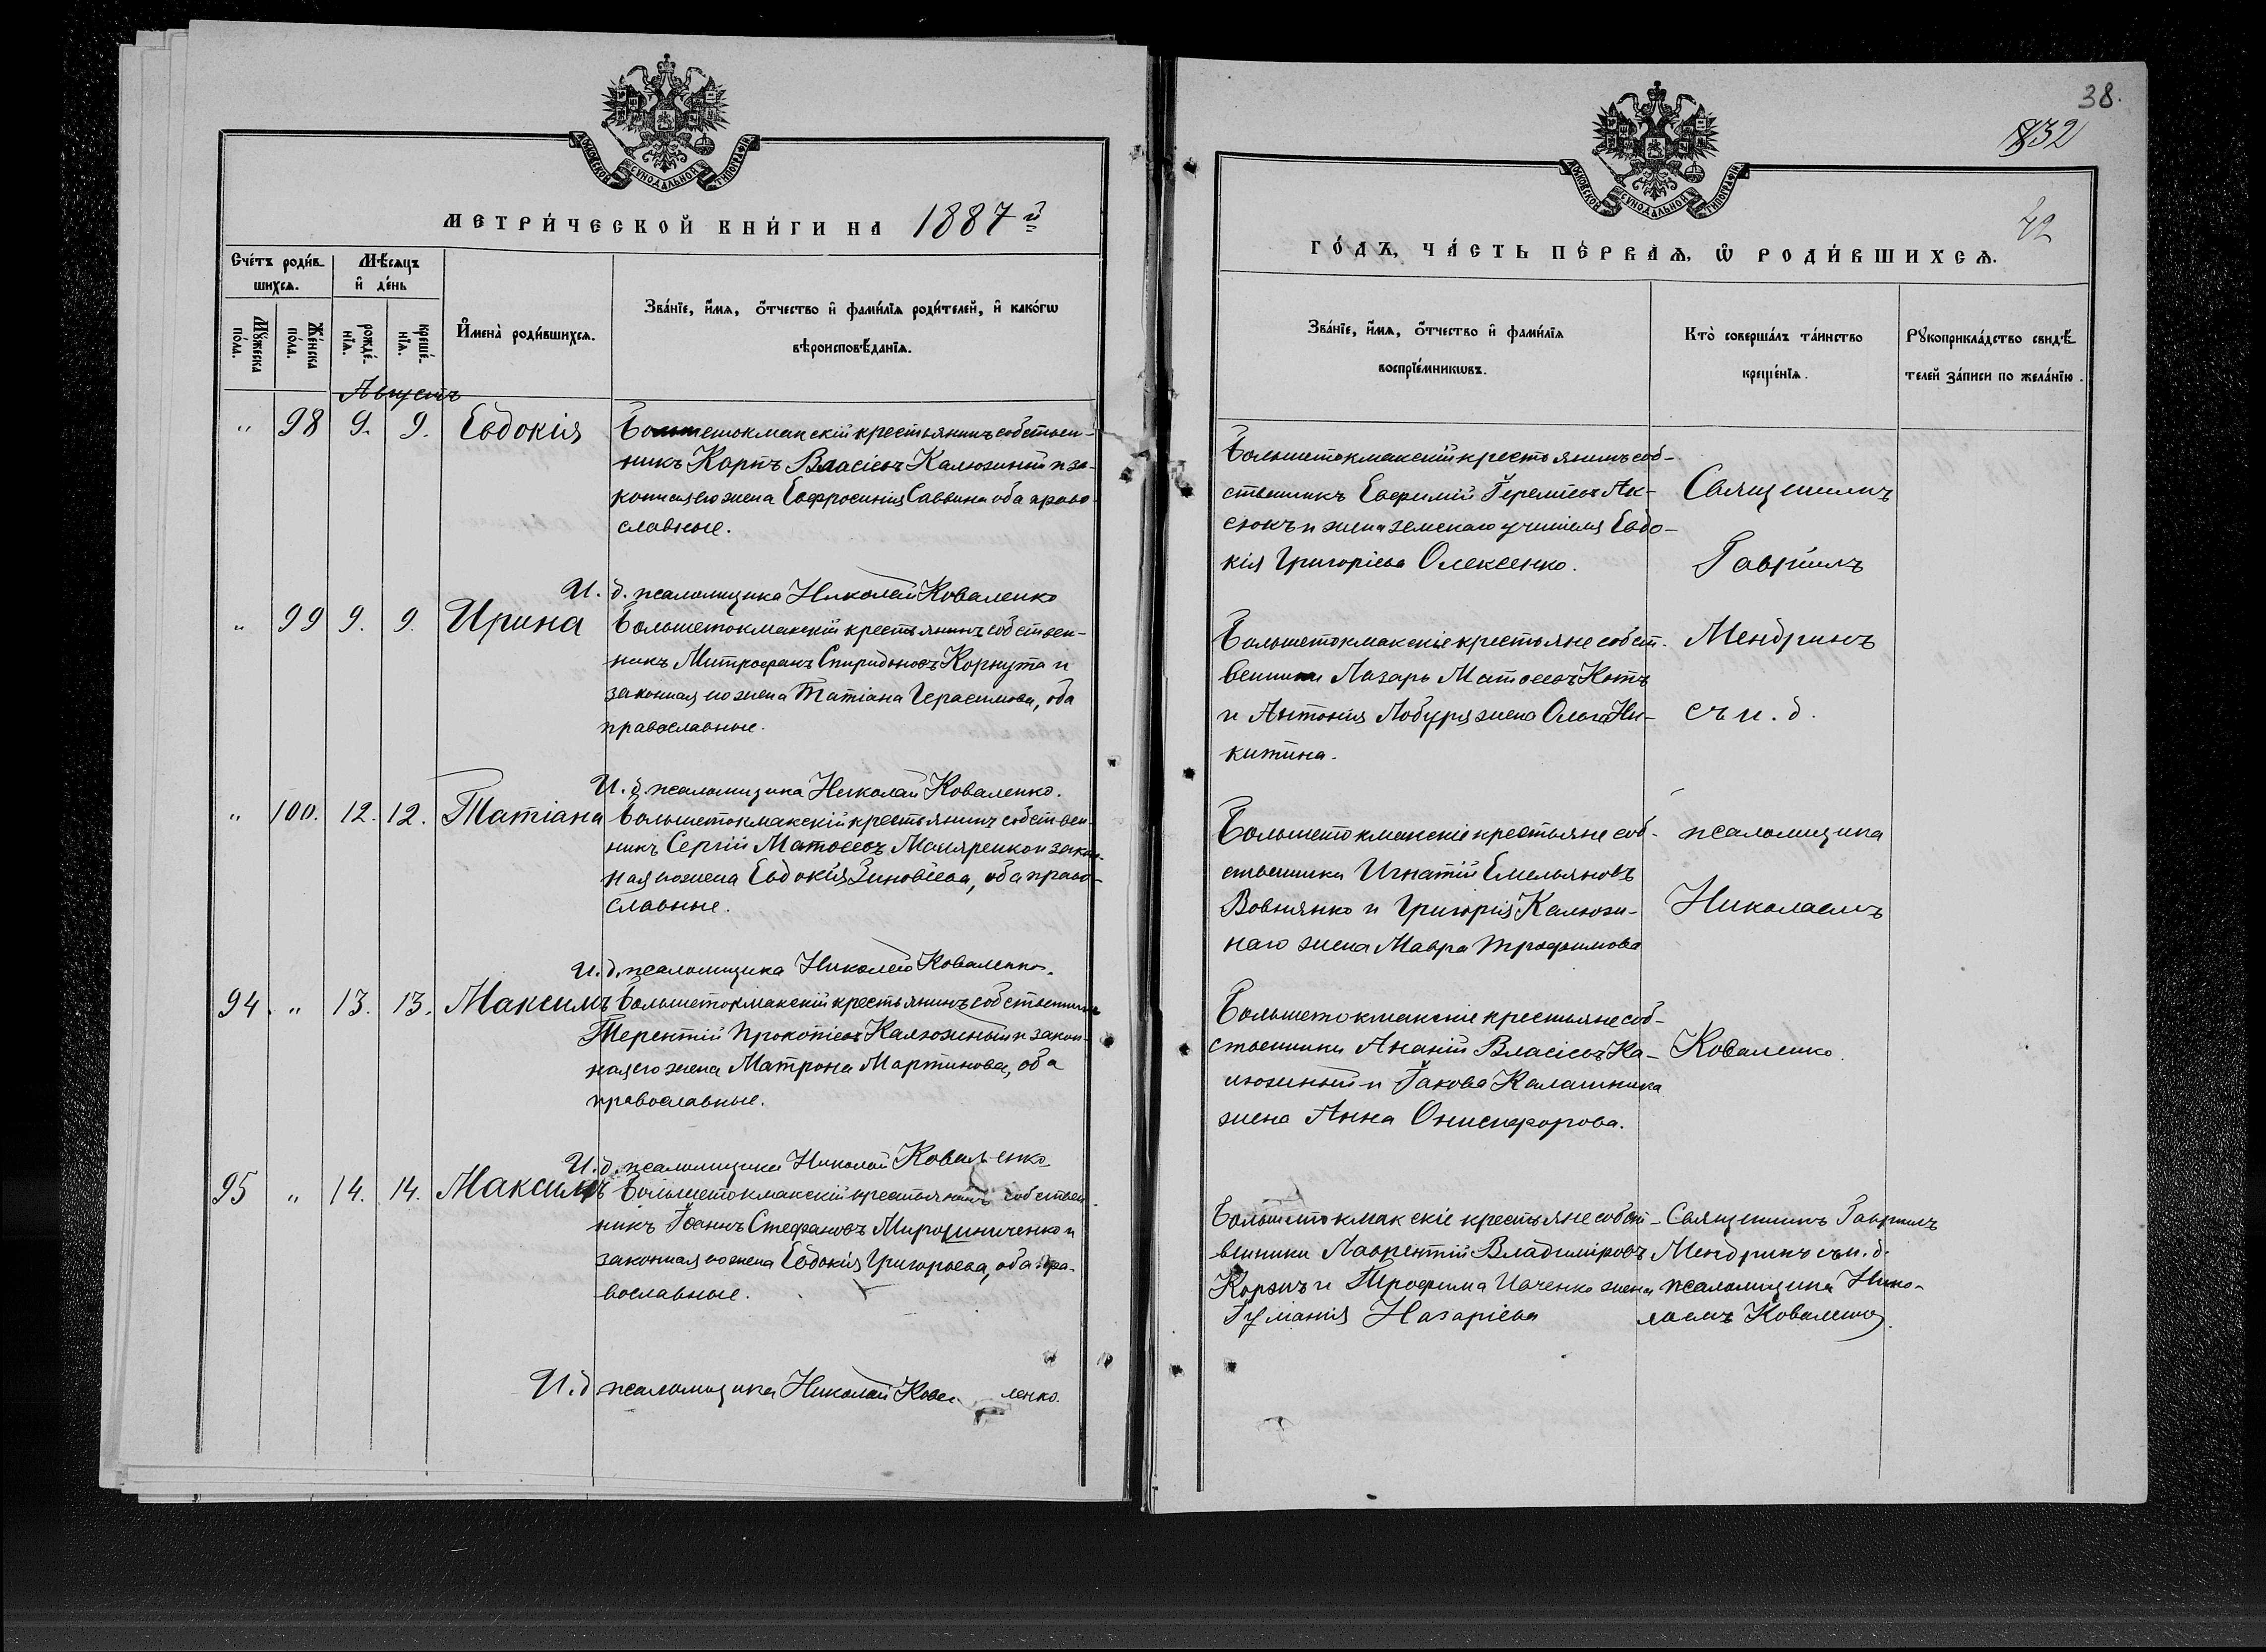 МОСКОВСКОЙ СѴНОДАЛЬНОЙ ТИПОГРАФІИ
МЕТРИ́ЧЕСКОЙ КНИ́ГИ НА 1887й
Сче́тъ роди́в
шихся.
Мѣ́сяцъ
и҆ де́нь
Мꙋ́жеска
по́ла.
Же́нска
по́ла.
рожде́
нїя.
креще́
нїя.
И҆мена̀ роди́вшихся.
Зва́нїе, и҆́мя, ѻ҆́тчество и҆ фами́лїя роди́телей, и҆ како́гѡ
вѣроисповѣ́данїя.
Августъ
„ 98 9. 9. Евдокія Большетокмакскій крестьянинъ собствен-
никъ Карпъ Власіевъ Калюжный и за-
конная его жена Евфросинія Саввина оба право-
славные.
И. д. псаломщика Николай Коваленко
„ 99 9. 9. Ирина Большетокмакскій крестьянинъ собствен-
никъ Митрофанъ Спиридоновъ Корнута и
законная его жена Татіана Герасимова, оба
православные.
И. д. псаломщика Николай Коваленко.
„ 100. 12. 12. Татіана Большетокмакскій крестьянинъ собствен-
никъ Сергій Матѳеевъ Маляренко и закон-
ная его жена Евдокія Зиновіева, оба право-
славные.
И. д. псаломщика Николай Коваленко.
94. „ 13. 13. Максимъ Большетокмакскій крестьянинъ собственникъ
Терентій Прокопіевъ Калюжный и закон-
ная его жена Матрона Мартинова, оба
православные.
И. д. псаломщика Николай Коваленко
95 „ 14. 14. Максимъ Большетокмакскій крестьянинъ собствен-
никъ Іоаннъ Стефановъ Мирошниченко и
законная его жена Евдокія Григорьева, оба пра-
вославные.
И. д псаломщика Николай Коваленко.
38.
832
42
МОСКОВСКОЙ СѴНОДАЛЬНОЙ ТИПОГРАФІИ
ГО́ДЪ, ЧА́СТЬ ПЕ́РВАЯ, Ѡ҆ РОДИ́ВШИХСЯ.
Зва́нїе, и҆́мя, ѻ҆́тчество и҆ фами́лїя
воспрїе́мникѡвъ.
Кто̀ соверша́лъ та́инство
креще́нїя.
Рꙋкоприкла́дство свидѣ́
телей за́писи по жела́нїю.
Большетокмакскій крестьянинъ соб-
ственникъ Евфимій Іереміевъ Ак-
сюкъ и жена земскаго учителя Евдо-
кія Григоріева Олексенко.
Священникъ
Гавріилъ
Большетокмакскіе крестьяне собст-
венники Лазарь Матѳеевъ Котъ
и Антонія Лобуря жена Ольга Ни-
китина.
Мендринъ
съ и. д.
Большетокмакскіе крестьяне соб-
ственники Игнатій Емельяновъ
Вовнянко и Григорія Калюж-
наго жена Мавра Трофимова
псаломщика
Николаемъ
Большетокмакскіе крестьяне соб-
ственники Ананій Власіевъ Ка-
люжный и Іакова Калашника
жена Анна Онисифорова.
Коваленко.
Большетокмакскіе крестьяне собст-
венники Лаврентій Владиміровъ
Коржъ и Трофима Ивченко жена
Іуліанія Назаріева
Священникъ Гавріилъ
Мендринъ съ и. д.
псаломщика Нико-
лаемъ Коваленко.